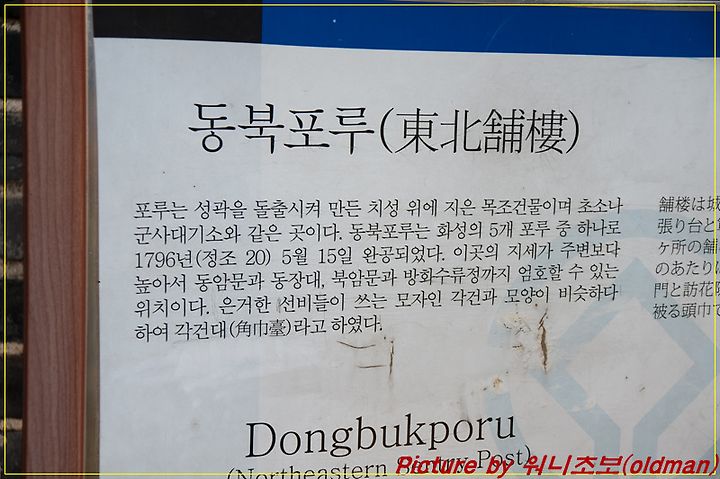 동북포루(東北舖樓)
포루는 성곽을 돌출시켜 만든 치성 위에 지은 목조건물이며 초소나
군사대기소와 같은 곳이다. 동북포루는 화성의 5개 포루 중 하나로
1796년(정조 20) 5월 15일 완공되었다. 이곳의 지세가 주변보다
높아서 동암문과 동장대, 북암문과 방화수류정까지 엄호할 수 있는
위치이다. 은거한 선비들이 쓰는 모자인 각건과 모양이 비슷하다
하여 각건대(角巾臺)라고 하였다.
舖楼は城
張り台と
ヶ所の舖
のあたり
門と訪花
被る頭巾で
Dongbukporu
(Northeastern Sentry Post)
Picture by 워니초보(oldman)